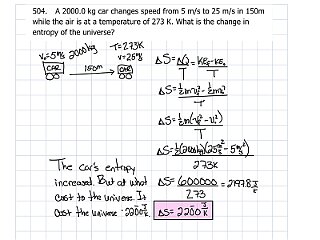 504. A 2000.0 kg car changes speed from 5 m/s to 25 m/s in 150m
while the air is at a temperature of 273 K. What is the change in
entropy of the universe?
v₀=5m/s 2000kg T=273K
v=25m/s
CAR 150m CAR
ΔS=ΔQ/T=KE_f-KE_o/T
ΔS=½mv_f²-½mv_o²/T
ΔS=½m(v_f²-v_o²)/T
ΔS=½(2000kg)(25²-5²)/273K
ΔS=600000/273=2197.8 J/K
ΔS=2200 J/K
The car's entropy
increased. But at what
cost to the universe. It
Cost the universe -2200 J/K.